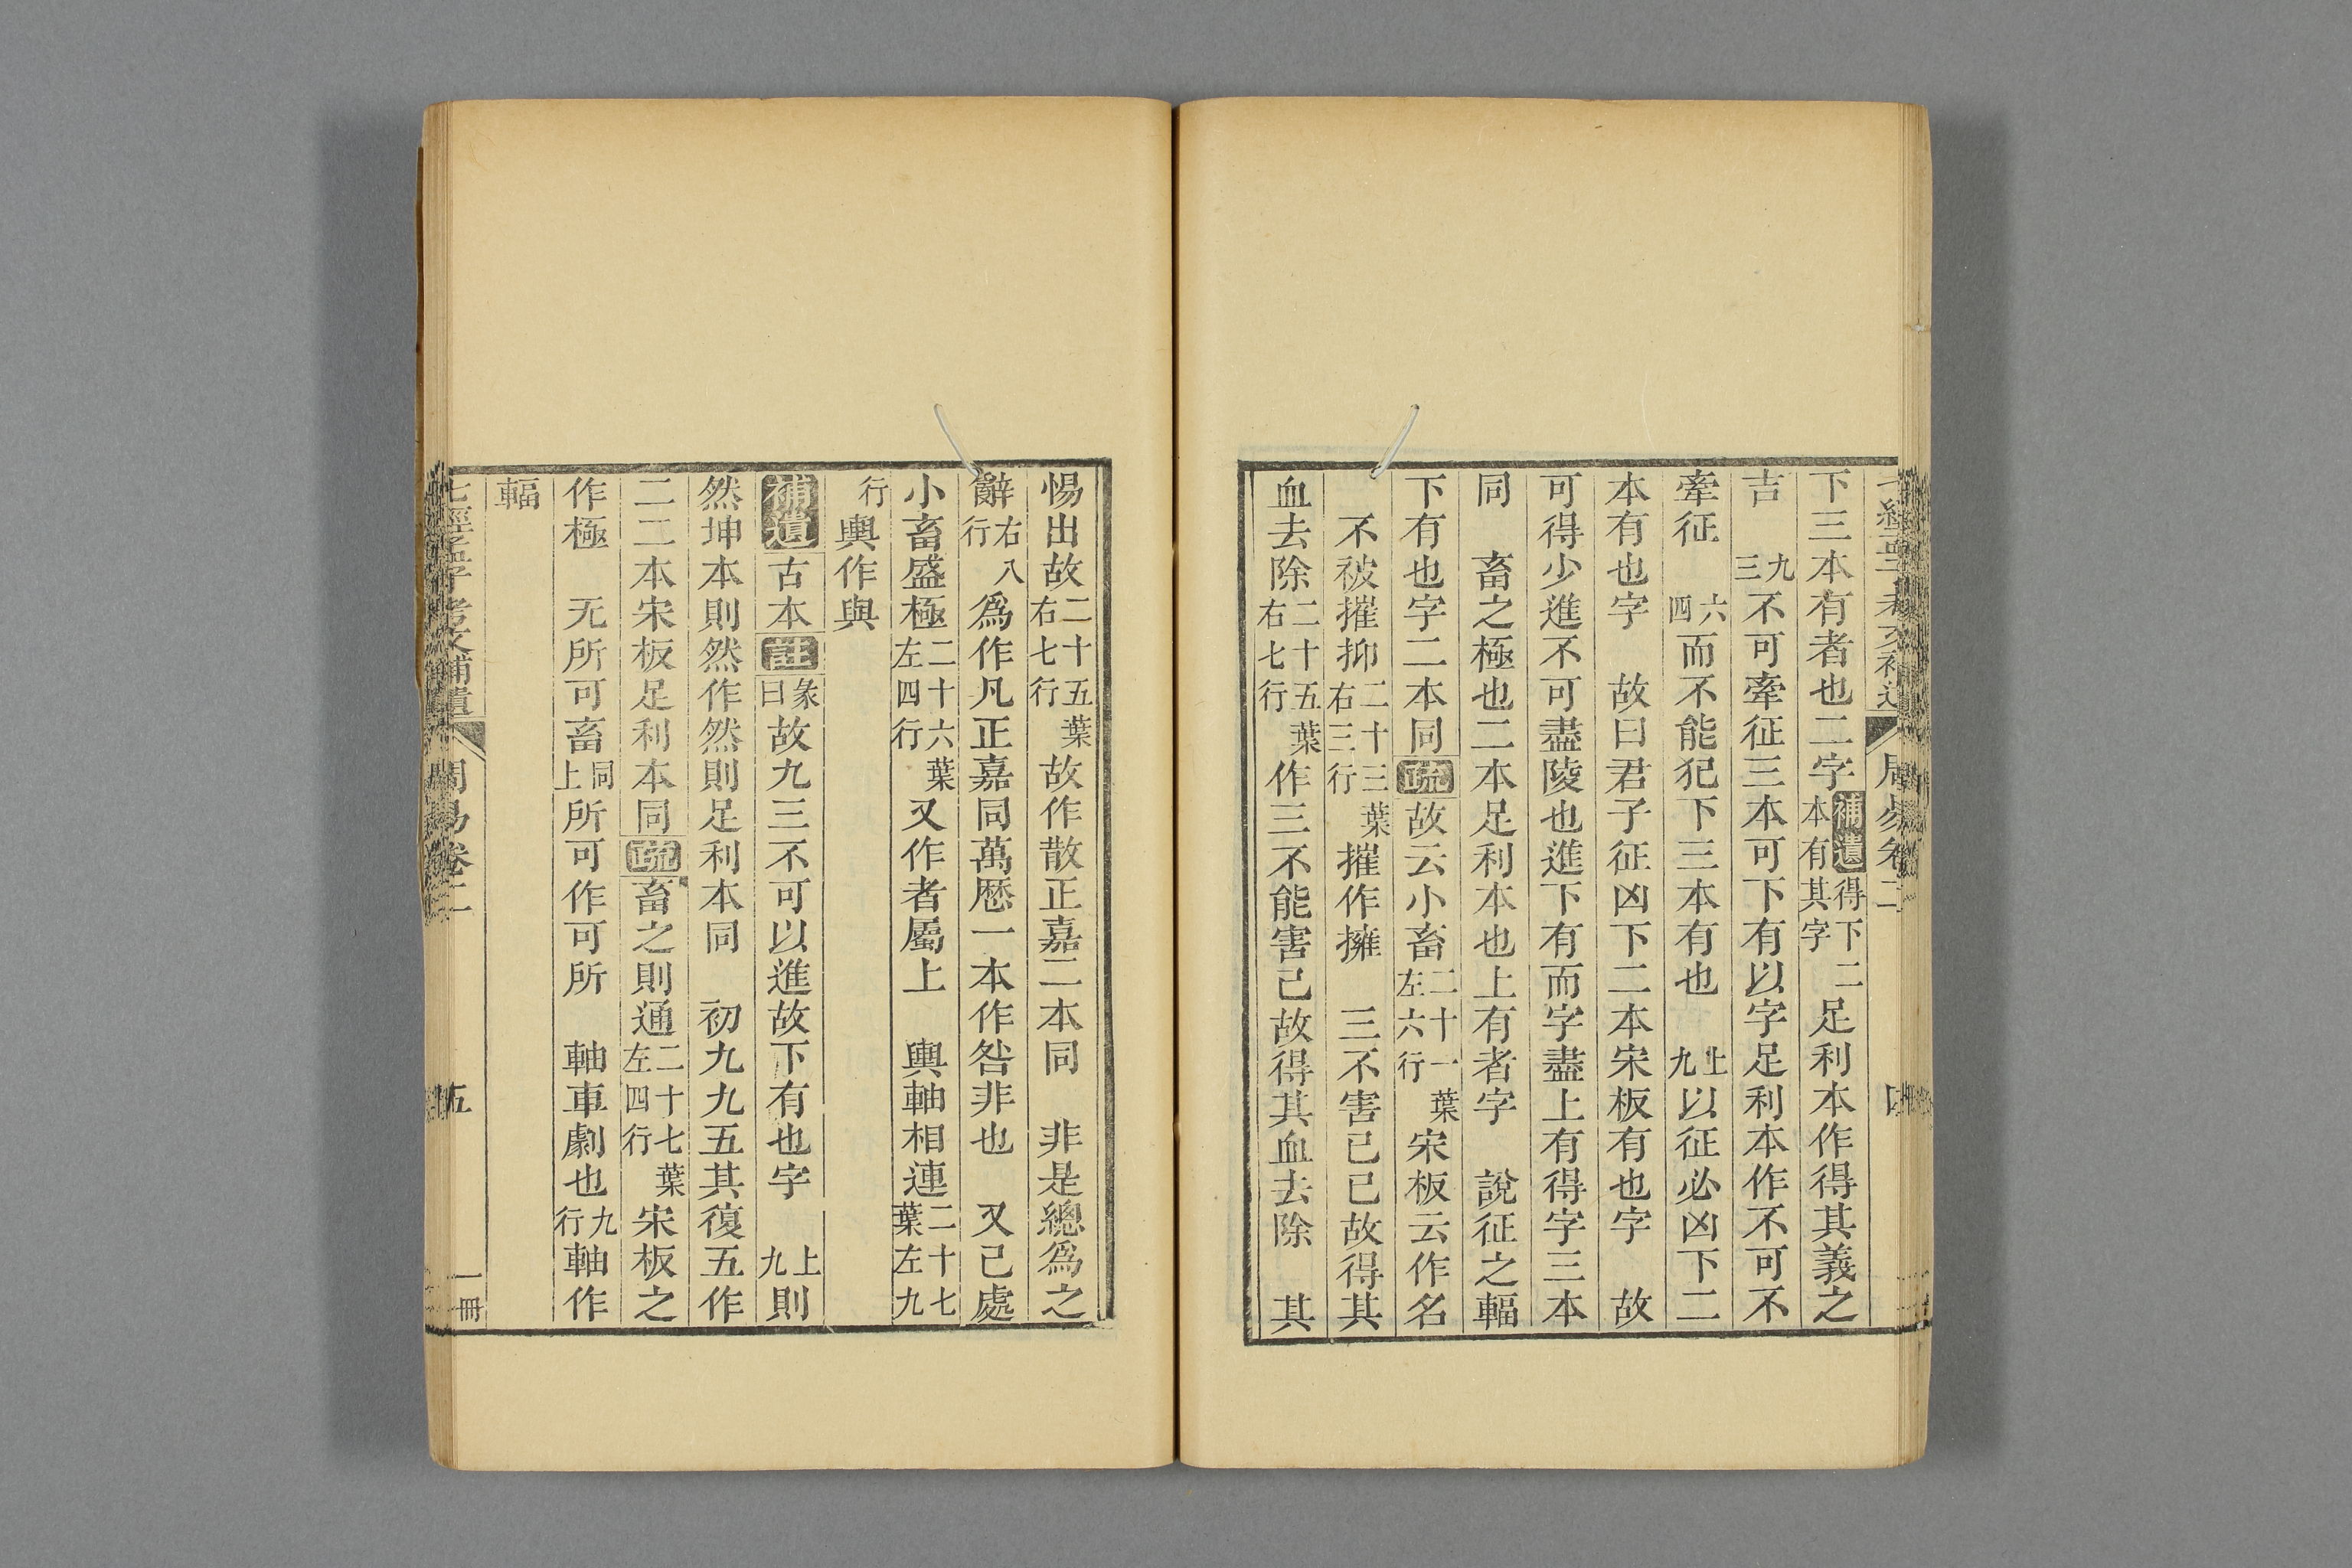 七經孟子考文補遺 周易卷二 四
下三本有者也二字補遺得下二本有其字足利本作得其義之
吉 九三不可牽征三本可下有以字足利本作不可不
牽征 六四而不能犯下三本有也 上九以征必凶下二
本有也字 故曰君子征凶下二本宋板有也字 故
可得少進不可盡陵也進下有而字盡上有得字三本
同 畜之極也二本足利本也上有者字 說征之輻
下有也字二本同疏故云小畜二十一葉左六行宋板云作名
不被摧抑二十三葉右三行摧作擁 三不害已已故得其
血去除二十五葉右七行作三不能害己故得其血去除 其
惕出故二十五葉右七行故作散正嘉二本同 非是總爲之
辭右八行爲作凡正嘉同萬曆一本作咎非也 又己處
小畜盛極二十六葉左四行又作者屬上 輿軸相連二十七葉左九
行輿作與
補遺古本註彖曰故九三不可以進故下有也字 上九則
然坤本則然作然則足利本同 初九九五其復五作
二二本宋板足利本同疏畜之則通二十七葉左四行宋板之
作極 无所可畜同上所可作可所 軸車劇也九行軸作
輻
七經孟子考文補遺 周易卷二 五 一冊